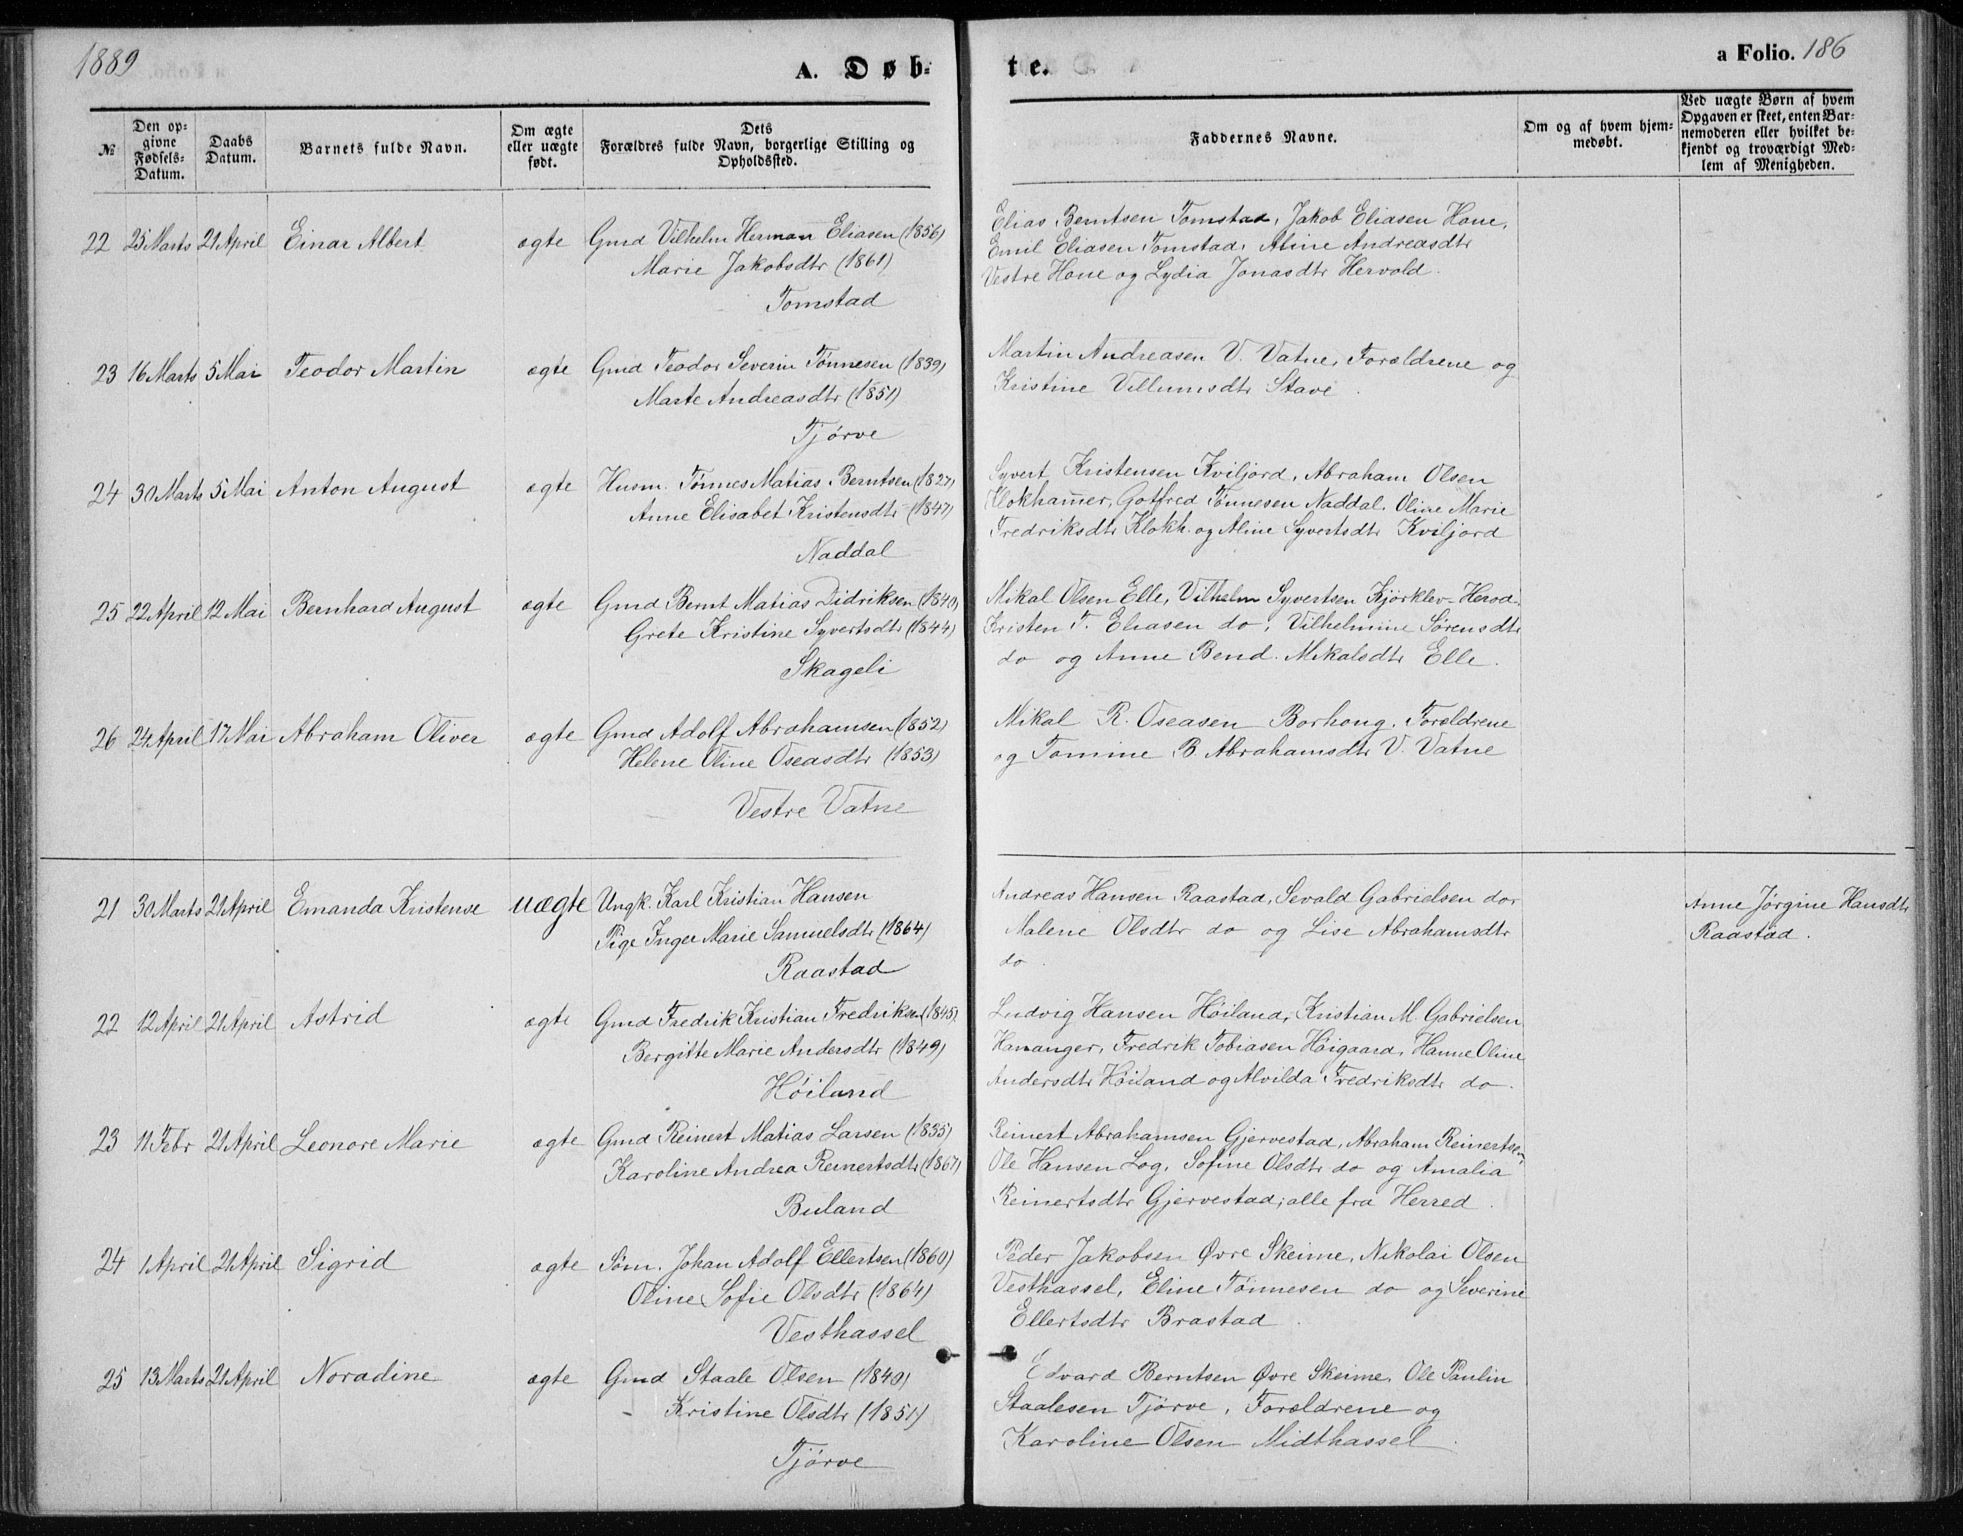 1889
A. Døb-
te.
a Folio. 186
№
Den op-
givne
Fødsels-
Datum.
Daabs
Datum.
Barnets fulde Navn.
Om ægte
eller uægte
født.
Dets
Forældres fulde Navn, borgerlige Stilling og
Opholdssted.
Faddernes Navne.
Om og af hvem hjem-
medøbt.
Ved uægte Børn af hvem
Opgaven er skeet, enten Bar-
nemoderen eller hvilket be-
kjendt og troværdigt Med-
lem af Menigheden.
22 25 Marts 21 April Einar Albert ægte Gmd Vilhelm Herman Eliasen (1856)
Marie Jakobsdtr (1861)
Tomstad
Elias Berntsen Tomstad, Jakob Eliasen Hane,
Emil Eliasen Tomstad, Aline Andreasdtr
Vestre Hane og Lydia Jonasdtr Hervold.
23 16 Marts 5 Mai Teodor Martin ægte Gmd Teodor Severin Tønnesen (1839)
Marte Andreasdtr (1851)
Tjørve
Martin Andreasen V. Vatne, Forældrene og
Kristine Villumsdtr Stave.
24 30 Marts 5 Mai Anton August ægte Husm. Tønnes Matias Berntsen (1827)
Anne Elisabet Kristensdtr (1847)
Naddal
Syvert Kristensen Kviljord, Abraham Olsen
Klokhammer, Gotfred Tønnesen Naddal, Oline Marie
Fredriksdtr Klokh. og Aline Syvertsdtr Kviljord
25 22 April 12 Mai Bernhard August ægte Gmd Bernt Matias Didriksen (1840)
Grete Kristine Syvertsdtr (1844)
Skageli
Mikal Olsen Elle, Vilhelm Syvertsen Kjørklev-Herod.
Kristen T. Eliasen do, Vilhelmine Sørensdtr
do og Anne Bend. Mikalsdtr Elle.
26 24 April 17 Mai Abraham Oliver ægte Gmd Adolf Abrahamsen (1852)
Helene Oline Oseasdtr (1853)
Vestre Vatne
Mikal R. Oseasen Borhong, Forældrene
og Tomine B. Abrahamsdtr V. Vatne
21 30 Marts 21 April Emanda Kristense uægte Ungk. Karl Kristian Hansen
Pige Inger Marie Samuelsdtr (1864)
Raastad
Andreas Hansen Raastad, Sevald Gabrielsen do,
Malene Olsdtr do og Lise Abrahamsdtr
do.
Anne Jørgine Hansdtr
Raastad.
22 12 April 21 April Astrid ægte Gmd Fredrik Kristian Fredriksen (1845)
Bergitte Marie Andersdtr (1849)
Høiland
Ludvig Hansen Høiland, Kristian M. Gabrielsen
Hananger, Fredrik Tobiasen Høigaard, Hanne Oline
Andersdtr Høiland og Alvilda Fredriksdtr do.
23 11 Febr 21 April Leonore Marie ægte Gmd Reinert Matias Larsen (1835)
Karoline Andrea Reinertsdtr (1867)
Buland
Reinert Abrahamsen Gjervestad, Abraham Reinertsen,
Ole Hansen Log, Sofine Olsdtr do og Amalia
Reinertsdtr Gjervestad; alle fra Herred.
24 1 April 21 April Sigrid ægte Søm. Johan Adolf Ellertsen (1860)
Oline Sofie Olsdtr (1864)
Vesthassel
Peder Jakobsen Øvre Skeime, Nikolai Olsen
Vesthassel, Eline Tønnesen do og Severine
Ellertsdtr Brastad.
25 13 Marts 21 April Noradine ægte Gmd Staale Olsen (1840)
Kristine Olsdtr (1851)
Tjørve
Edvard Berntsen Øvre Skeime, Ole Paulin
Staalesen Tjørve, Forældrene og
Karoline Olsen Midthassel.